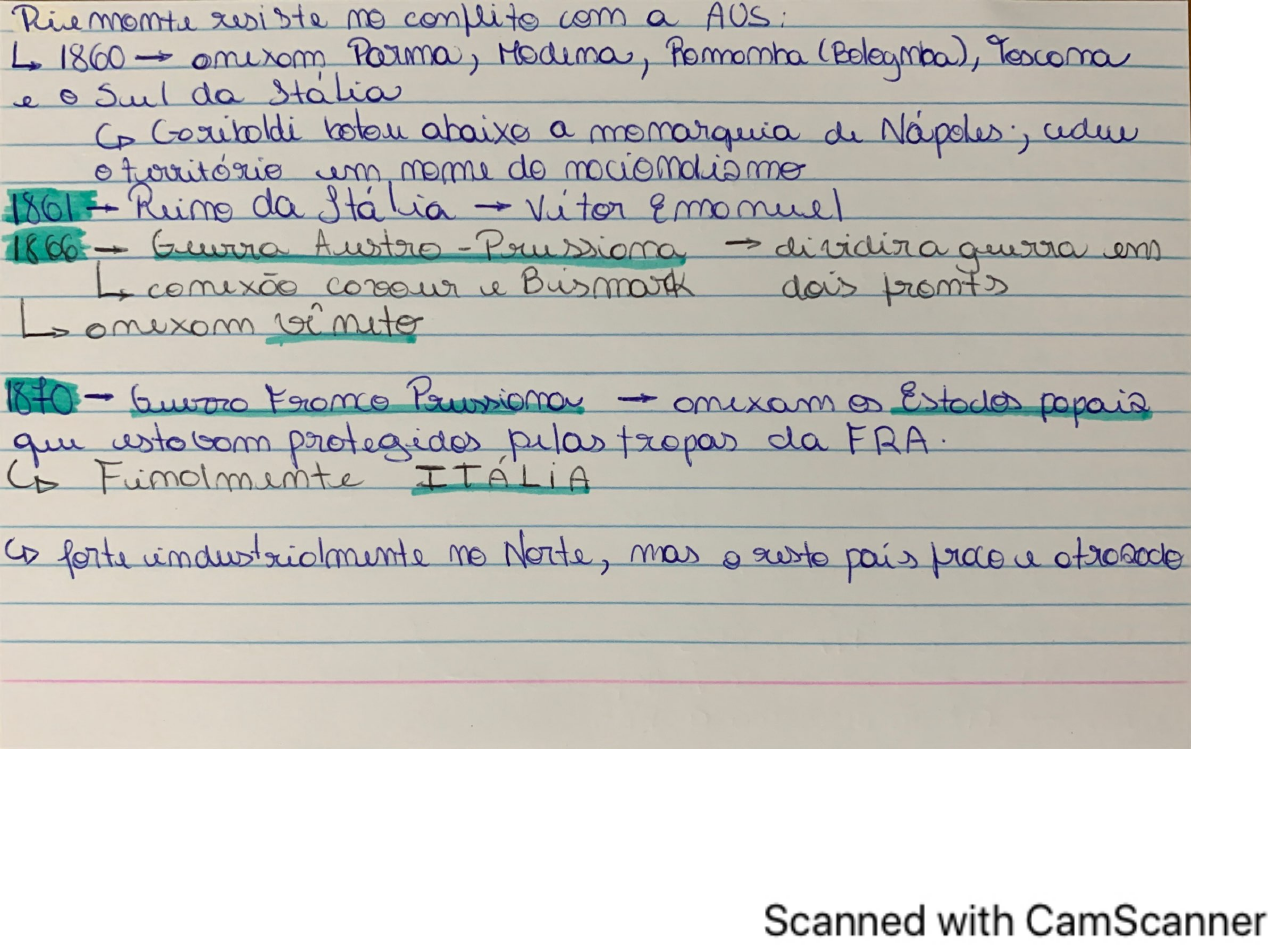 Piemonte resiste no conflito com a AUS:
↳ 1860 → anexam Parma, Modena, Romanha (Bolognha), Toscana
e o Sul da Itália
↳ Garibaldi botou abaixo a monarquia de Nápoles; cedeu
o território em nome do nacionalismo
1861 → Reino da Itália → Vitor Emanuel
1866 → Guerra Austro-Prussiana → dividir a guerra em
↳ conexão Cavour e Bismark dois fronts
↳ anexam Vêneto
1870 → Guerra Franco Prussiana → anexam os Estados papais
que estavam protegidos pelas tropas da FRA.
↳ Finalmente ITÁLIA
↳ forte industrialmente no Norte, mas o resto país fraco e atrasado
Scanned with CamScanner